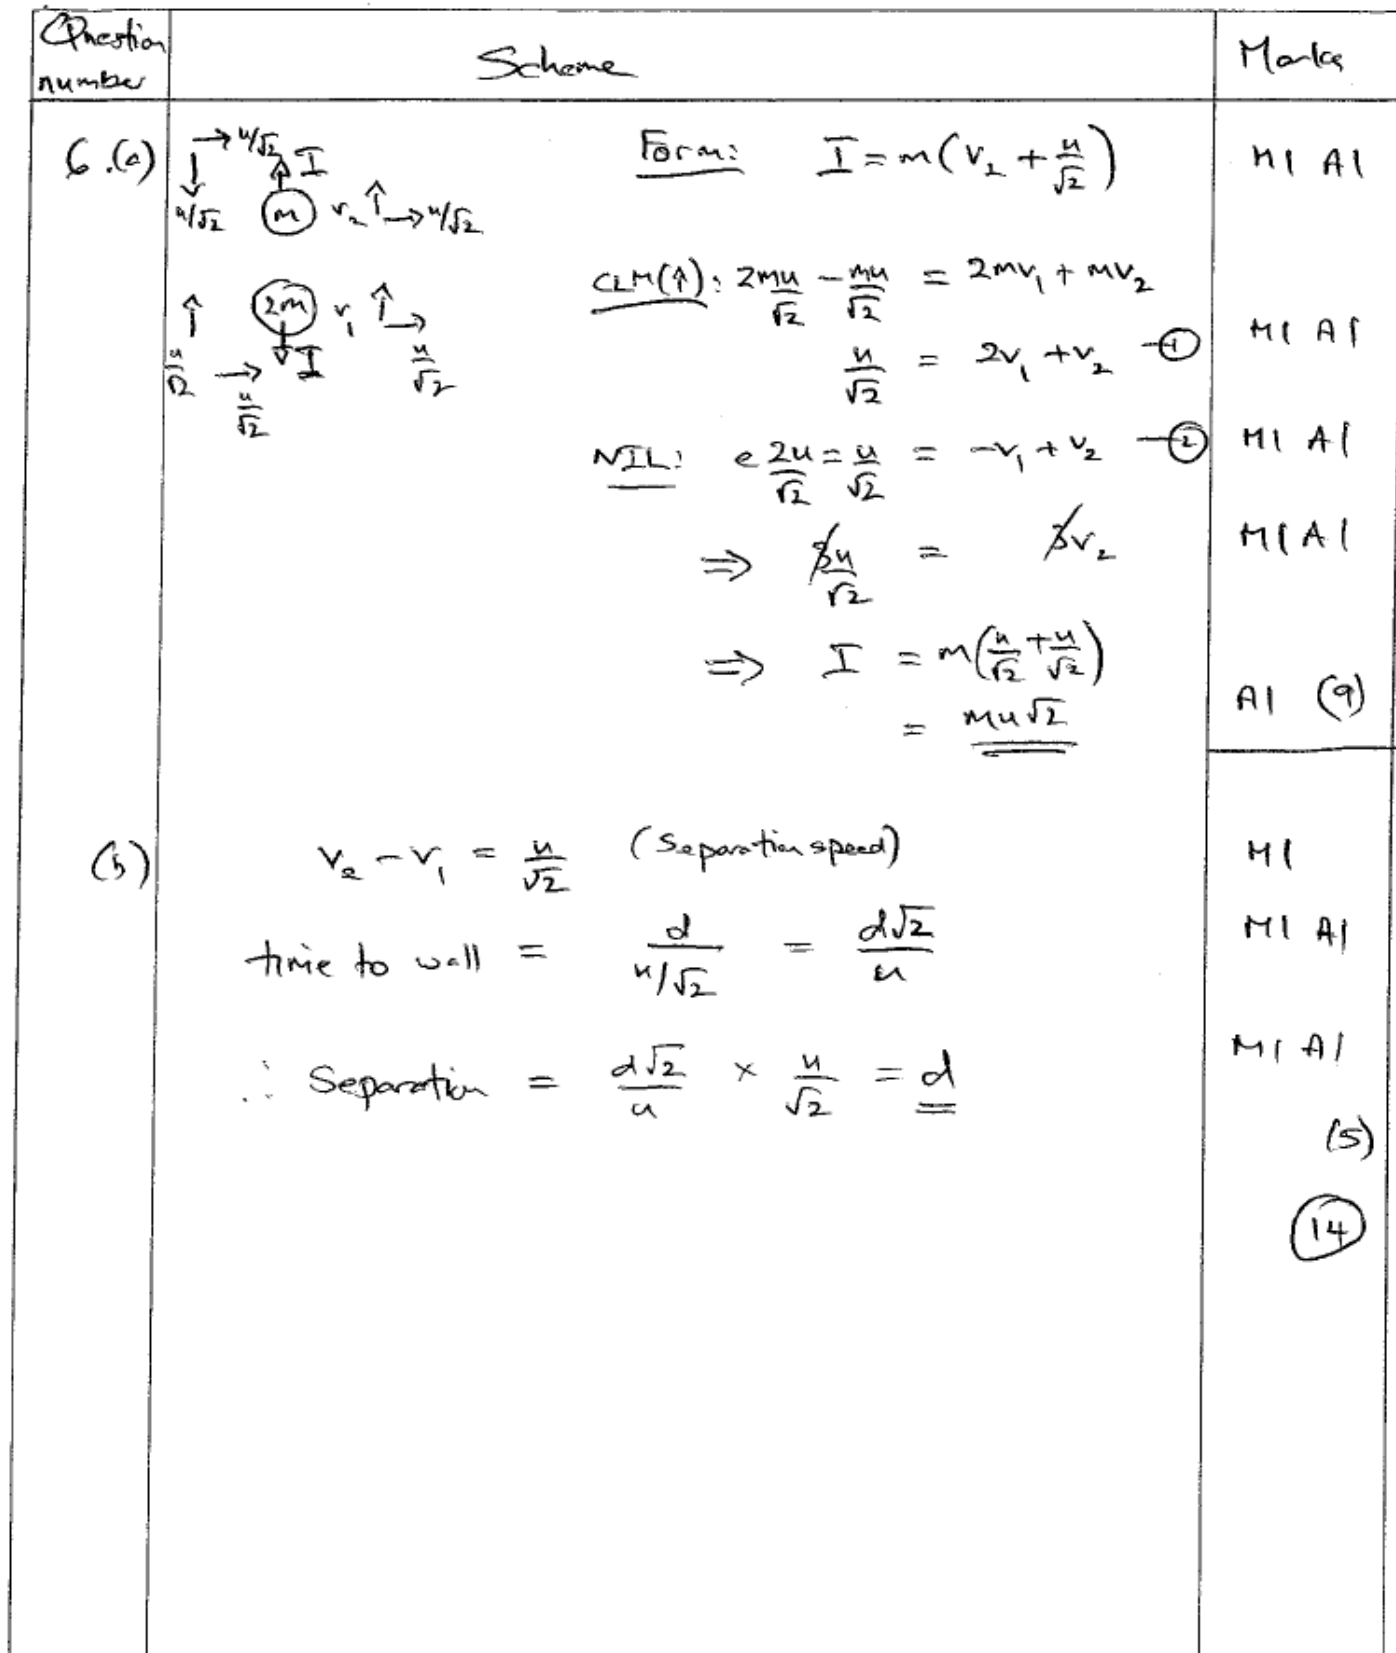 Question number Scheme Marks
6.(a) → u/√2 ↑ I Form: I = m(v₂ + u/√2) M1 A1
↓ u/√2 (m) v₂ ↑ → u/√2
CLM(↑): 2mu/√2 − mu/√2 = 2mv₁ + mv₂
↑ u/√2 → u/√2 (2m) ↓ I v₁ ↑ → u/√2
u/√2 = 2v₁ + v₂ —① M1 A1
NIL: e 2u/√2 = u/√2 = −v₁ + v₂ —② M1 A1
⇒ 3u/√2 = 3v₂ M1 A1
⇒ I = m(u/√2 + u/√2)
= mu√2 A1 (9)
(b) v₂ − v₁ = u/√2 (Separation speed) M1
time to wall = d/(u/√2) = d√2/u M1 A1
∴ Separation = d√2/u × u/√2 = d M1 A1
(5)
14